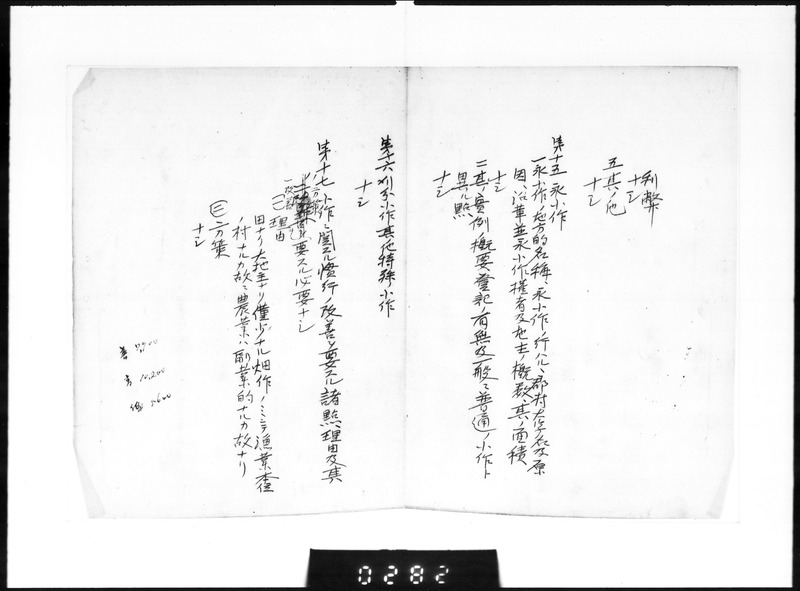 利弊
ナシ
五其ノ他
ナシ
第十五 永小作
一永小作ノ地方的名称、永小作ノ行ハルヽ郡村大字名及原
因、沿革並永小作権者及地主ノ概数、其ノ面積
ナシ
二其ノ実例概要登記ノ有無及一般ニ普通ノ小作ト
異ル点
ナシ
第十六 刈分小作其他特殊小作
ナシ
第十七 小作ニ関スル慣行ノ改善ヲ要スル諸点、理由及其
方策
一改善ヲ要スル必要ナシ
(二)理由
田ナク大地主ナク僅少ナル畑作ノミニシテ漁業本位
ノ村ナルカ故ニ農業ハ副業的ナルカ故ナリ
(三)方策
ナシ
0282